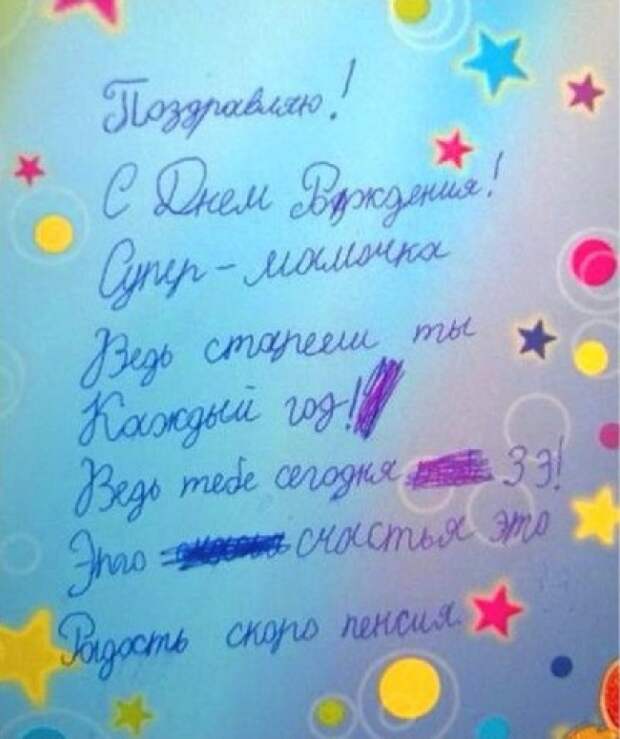 Поздравляю!
С Днем Рождения!
Супер-мамочка
Ведь старееш ты
Каждый год!
Ведь тебе сегодня 33!
Это счастья это
Радость скоро пенсия.